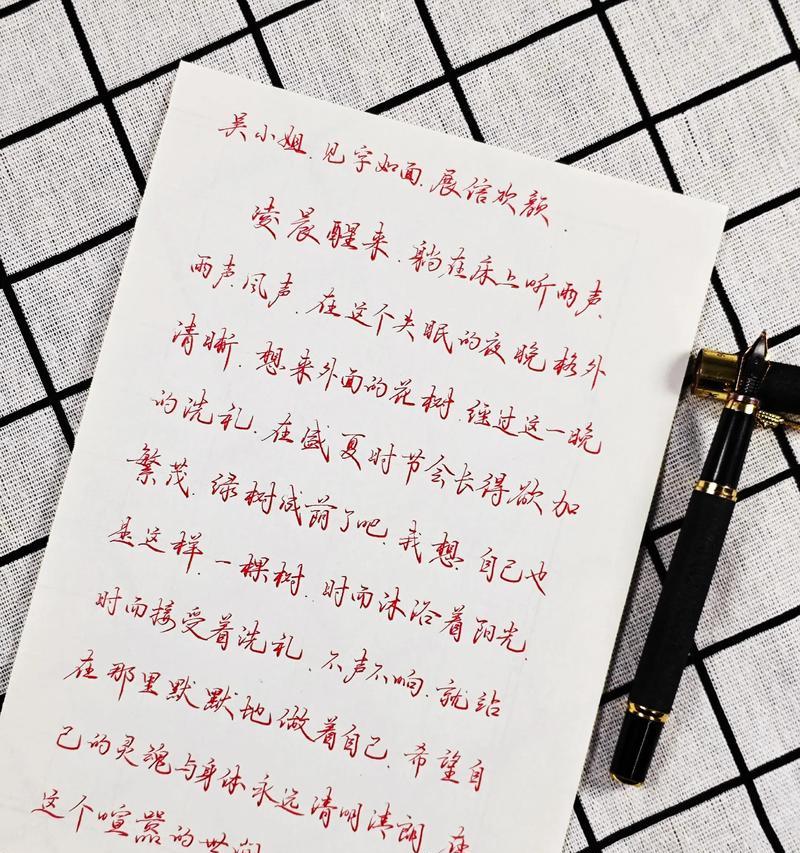 吴小姐.见字如面.展信欢颜.
凌晨醒来.躺在床上听雨声.
雨声.风声.在这个失眠的夜晚格外
清晰.想来外面的花树.经过这一晚
的洗礼.在盛夏时节会长得欲加
繁茂.绿树成荫了吧.我想.自己也
是这样.一棵树.时而沐浴着阳光.
时而接受着洗礼.不声不响.就站
在那里默默地做着自己.希望自
己的灵魂与身体永远清明清朗.在
这个喧嚣的世间